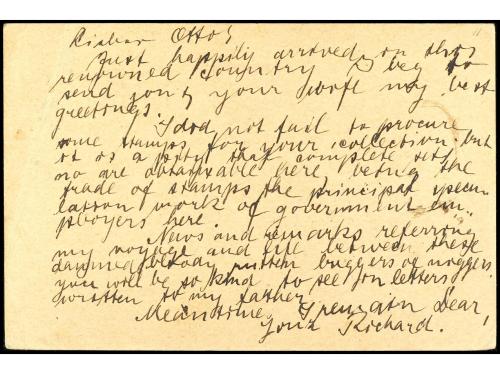 Lieber Otto!
Just happily arrived on this
renowned country I beg to
send you & your wife my best
greetings.
I did not fail to procure
some stamps for your collection, but
it is a pity that complete sets
no are obtainable here, being the
trade of stamps the principal specu-
lation work of government em-
ployers here.
News and remarks referring
my voyage and life between these
damned bloody rotten buggers of niggers,
you will be so kind to see in letters
written to my father.
Meantime I remain Dear,
Your Richard.